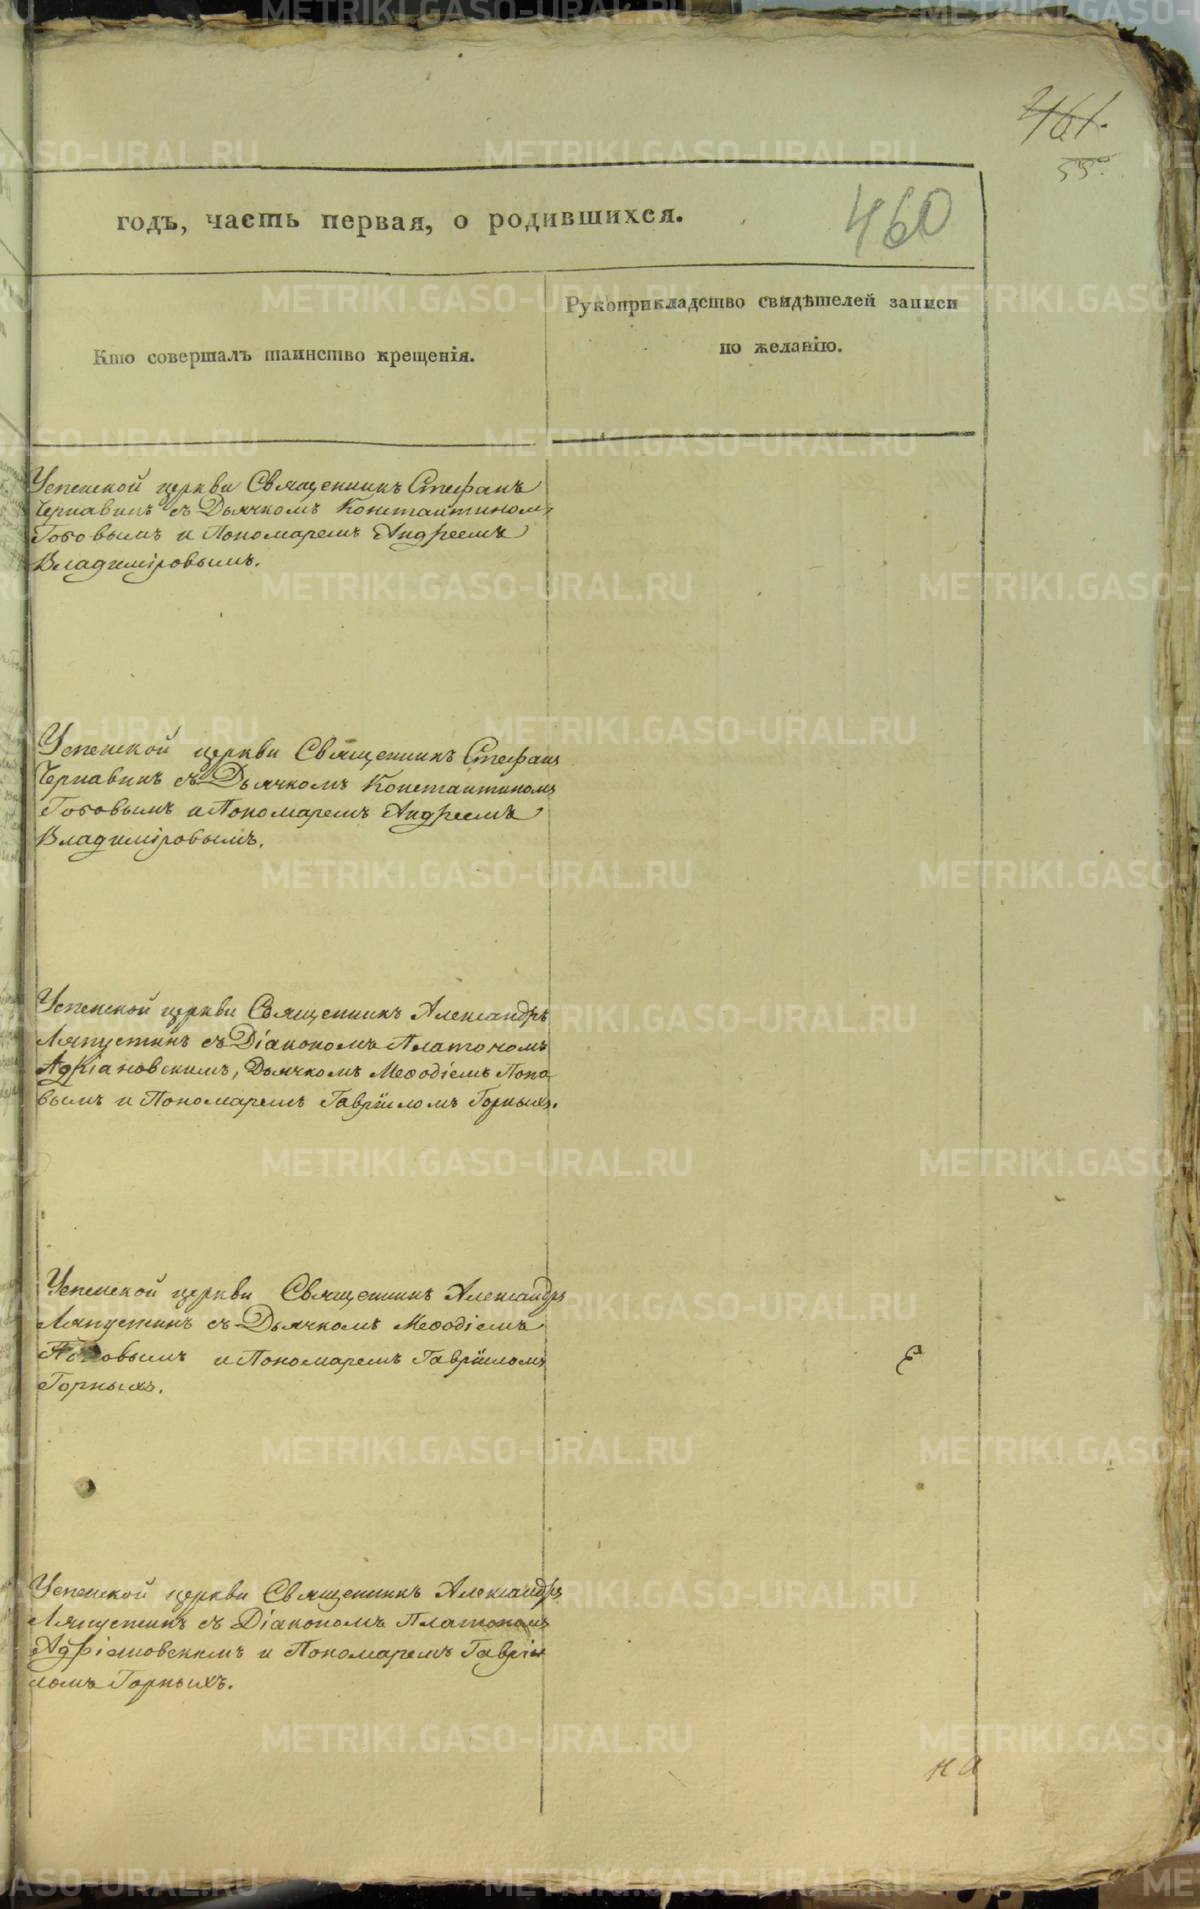 461.
55
460
годъ, часть первая, о родившихся.
Кто совершалъ таинство крещенія.
Рукоприкладство свидѣтелей записи
по желанію.
Успенской церкви Священникъ Стефанъ
Чернавинъ съ Дьячкомъ Константиномъ
Гововымъ и Пономаремъ Андреемъ
Владиміровымъ.
Успенской церкви Священникъ Стефанъ
Чернавинъ съ Дьячкомъ Константиномъ
Гововымъ и Пономаремъ Андреемъ
Владиміровымъ.
Успенской церкви Священникъ Александръ
Ляпустинъ съ Діакономъ Платономъ
Адріановскимъ, Дьячкомъ Меѳодіемъ Попо-
вымъ и Пономаремъ Гавріиломъ Горныхъ.
Успенской церкви Священникъ Александръ
Ляпустинъ съ Дьячкомъ Меѳодіемъ
Поповымъ и Пономаремъ Гавріиломъ
Горныхъ.
Успенской церкви Священникъ Александръ
Ляпустинъ съ Діакономъ Платономъ
Адріановскимъ и Пономаремъ Гавріи
ломъ Горныхъ.
на
METRIKI.GASO-URAL.RU